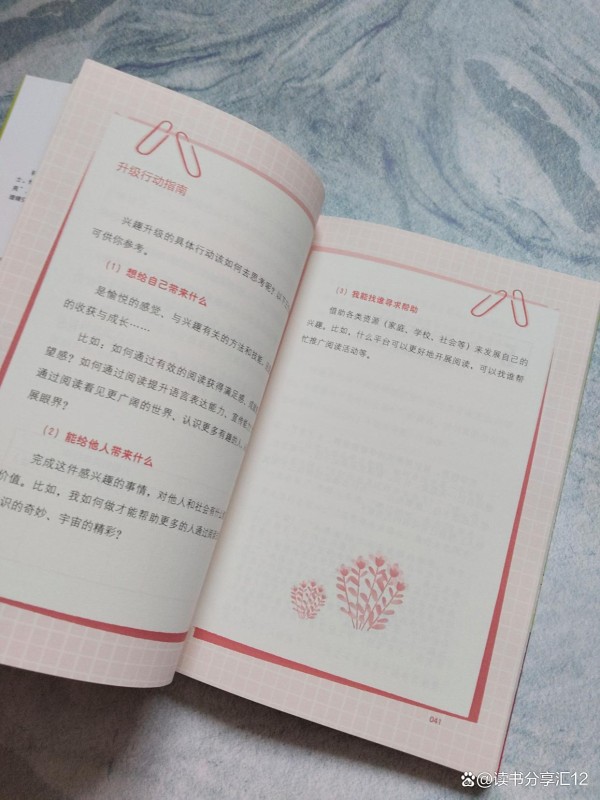 升级行动指南
兴趣升级的具体行动该如何去思考呢？以下
可供你参考。
（1）想给自己带来什么
是愉悦的感觉、与兴趣有关的方法和技能、
的收获与成长……
比如：如何通过有效的阅读获得满足感、
望感？如何通过阅读提升语言表达能力、宣传
通过阅读看见更广阔的世界、认识更多有趣的人、
展眼界？
（2）能给他人带来什么
完成这件感兴趣的事情，对他人和社会有什么
价值。比如，我如何做才能帮助更多的人通过阅读
识的奇妙、宇宙的精彩？
（3）我能找谁寻求帮助
借助各类资源（家庭、学校、社会等）来发展自己的
兴趣。比如，什么平台可以更好地开展阅读，可以找谁帮
忙推广阅读活动等。
041
@读书分享汇12